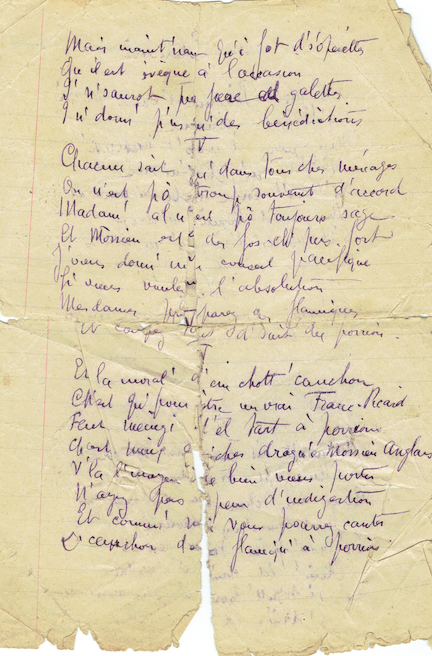 Mais maint'nant qu'i fot d's'opérettes
Qu'il est évêque à l'occasion
I n'saurot pu faire d' galettes
I n'donn' pus qu'des bénédictions
IV
Chacun sait qu'dans tous ches ménages
On n'est pô trop souvent d'accord
Madam' al n'est pô toujours sage
Et Mossieu est des fos ch' pus fort
J'vous donn' un conseil pacifique
Si vous voulez l'absolution
Mesdames préparez des flamiques
Et coupez d'su du porion
V
Et la moral' d'em chott' canchon
Ch'est qu'pour être un vrai Franc-Picard
Faut mingi d'el tart à porions
Ch'est mieux q' ches dragées Mossieu Anglais
V'là l'moyen de bien vous porter
N'ayez pas peur d'indigestion
Et comm' vous pourrez canter
L'canchon d'el flamiq' à porions